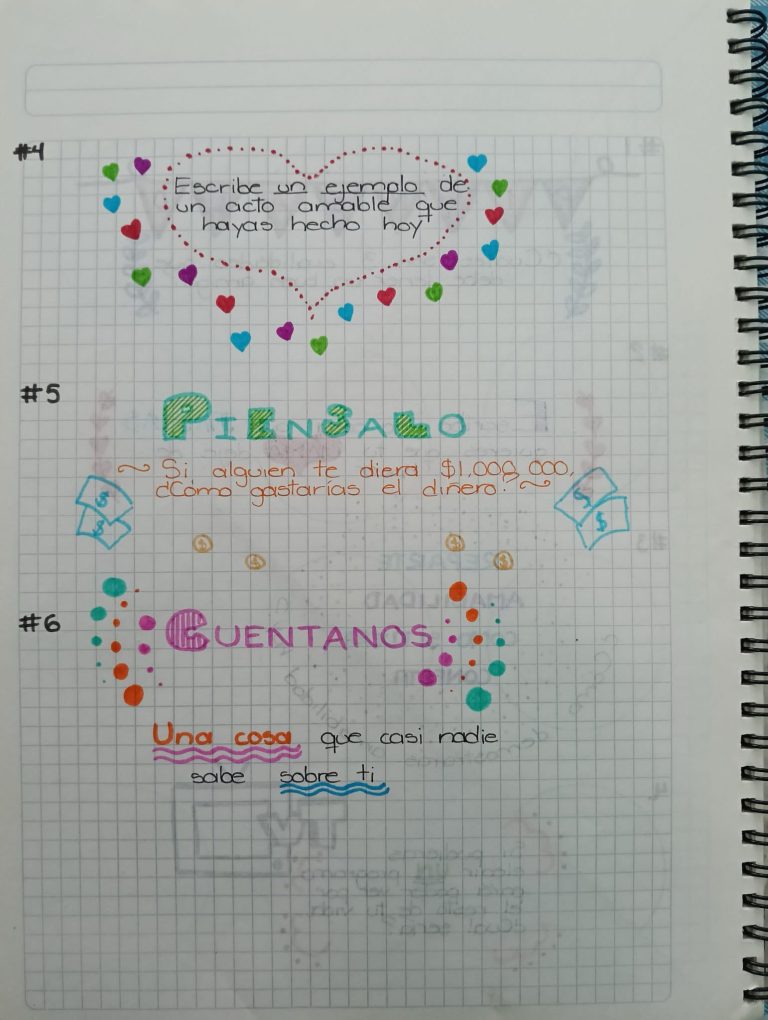 #4
Escribe un ejemplo de
un acto amable que
hayas hecho hoy
#5
PIENSALO
~ Si alguien te diera $1,000,000,
¿Cómo gastarías el dinero? ~
$ $
$ $
$ $ $ $
#6
CUENTANOS
Una cosa que casi nadie
sabe sobre ti